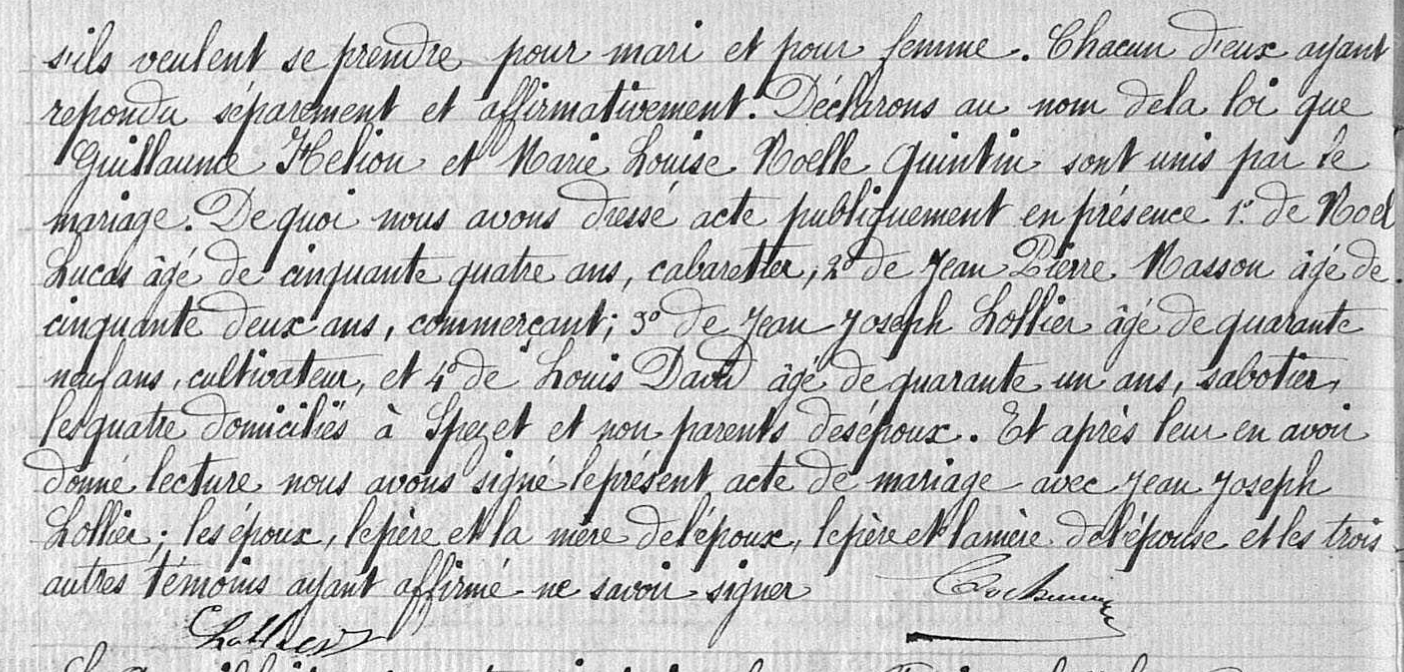 s'ils veulent se prendre pour mari et pour femme. Chacun d'eux ayant
repondu séparement et affirmativement. Déclarons au nom de la loi que
Guillaume Helion et Marie Louise Noelle Quintin sont unis par le
mariage. De quoi nous avons dressé acte publiquement en présence 1º de Noel
Lucas âgé de cinquante quatre ans, cabaretier, 2º de Jean Pierre Masson âgé de
cinquante deux ans, commerçant; 3º de Jean Joseph Lollier âgé de quarante
neuf ans, cultivateur, et 4º de Louis David âgé de quarante un ans, sabotier,
les quatre domiciliés à Spezet et non parents des époux. Et après leur en avoir
donné lecture nous avons signé le présent acte de mariage avec Jean Joseph
Lollier; les époux, le père et la mère de l'époux, le père et la mère de l'épouse et les trois
autres témoins ayant affirmé ne savoir signer
Lollier